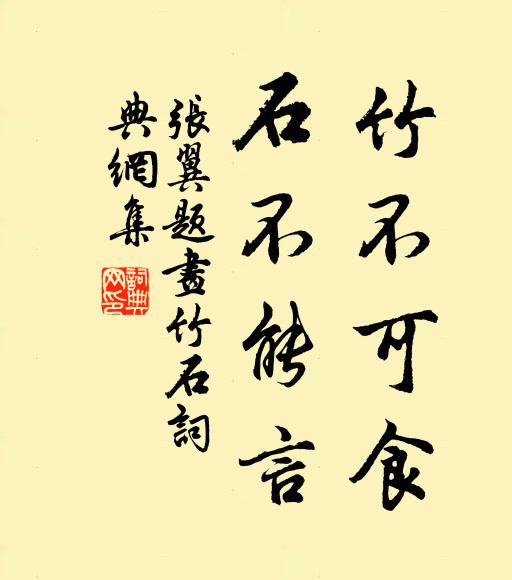 竹不可食
石不能言
張翼題畫竹石詞
典網集
詞典網印